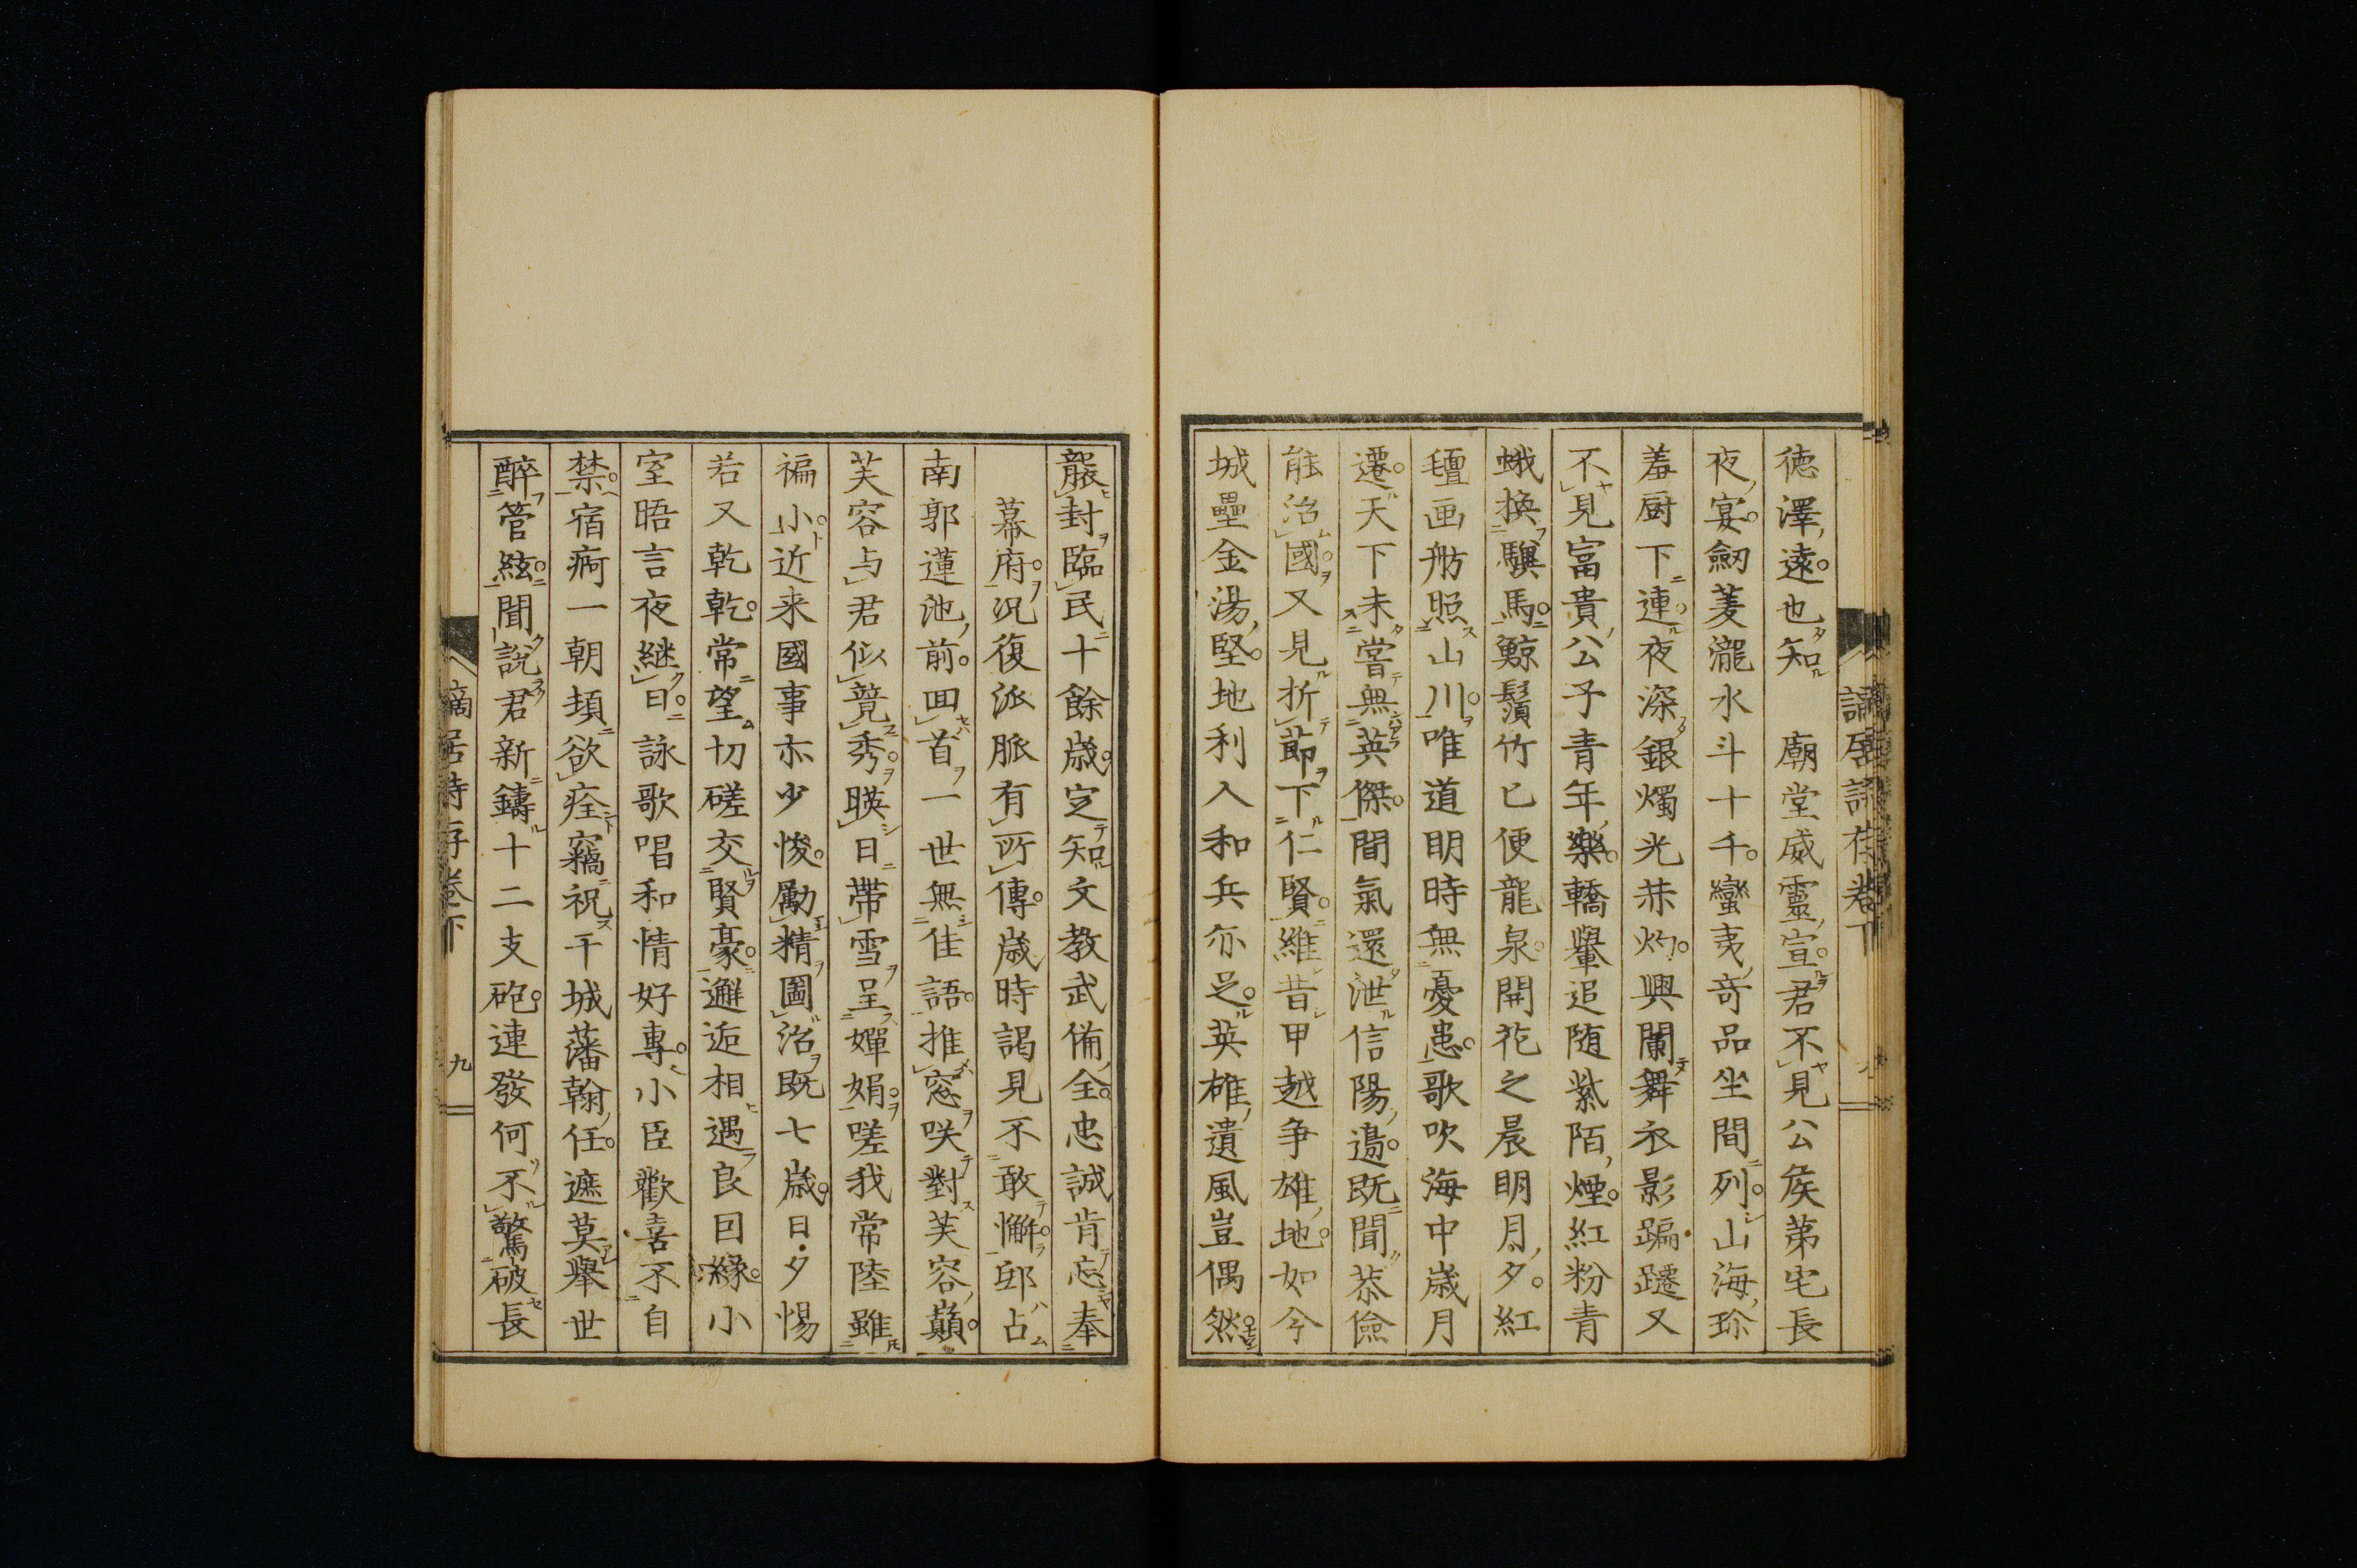 德澤遠也知　廟堂威靈宣君不見公矦苐宅長
夜宴劒菱瀧水斗十千蠻夷奇品坐間列山海珍
羞厨下連夜深銀燭光𤆬灼興闌舞衣影蹁躚又
不見富貴公子青年樂轎轝追随紫陌煙紅粉青
蛾換驥馬鯨鬚竹已便龍泉開花之晨明月夕紅
氊画舫照山川唯道明時無憂患歌吹海中歳月
遷天下未嘗無英傑間氣還泄信陽邉既聞恭儉
能治國又見折節下仁賢維昔甲越争雄地如今
城壘金湯堅地利人和兵亦足英雄遺風豈偶然
襲封臨民十餘歳定知文教武備全忠誠肯忘奉
幕府況復派脈有所傳歳時謁見不敢懈邸占
南郭蓮池前囬首一世無佳語推窓咲對芙容巔
芙容与君似競秀暎日帶雪呈嬋娟嗟我常陸雖
褊小近来國事亦少悛勵精圖治既七歳日夕惕
若又乾乾常望切磋交賢豪邂逅相遇良因緣小
室晤言夜継日詠歌唱和情好專小臣歡喜不自
禁宿痾一朝頓欲痊竊祝干城藩翰任遮莫擧世
醉管絃聞說君新鑄十二支砲連發何不驚破長
謫居詩存卷下
九